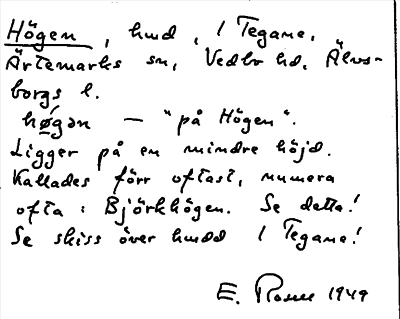 Högen, hmd, 1 Tegane,
Ärtemarks sn, Vedbo hd, Älvs-
borgs l.
hǿgən — "på Högen".
Ligger på en mindre höjd.
Kallades förr oftast, numera
ofta: Björkhögen. Se detta!
Se skiss över hmdd 1 Tegane!
E. Rosell 1949